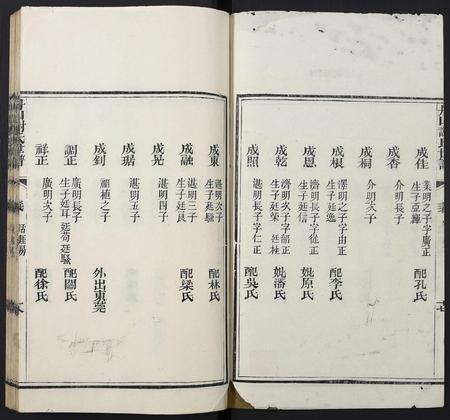 成佳 業明之子字廣正 生子亞 配孔氏
成杏 介明長子
成桐 介明次子
成根 澤明之子字由正 生子廷逸 配李氏
成恩 濟明長子字從正 生子廷信 妣原氏
成乾 濟明次子字韶正 生子廷 廷桂 妣潘氏
成照 湛明長子字仁正 配吳氏
成東 湛明次子 生子廷驕 配林氏
成融 湛明三子 生子廷良 配梁氏
成晃 湛明四子
成琚 湛明五子
成釗 祖植之子 外出東莞
調正 廣明長子 生子廷耳 廷苟 廷驕 配關氏
祥正 廣明次子 配徐氏